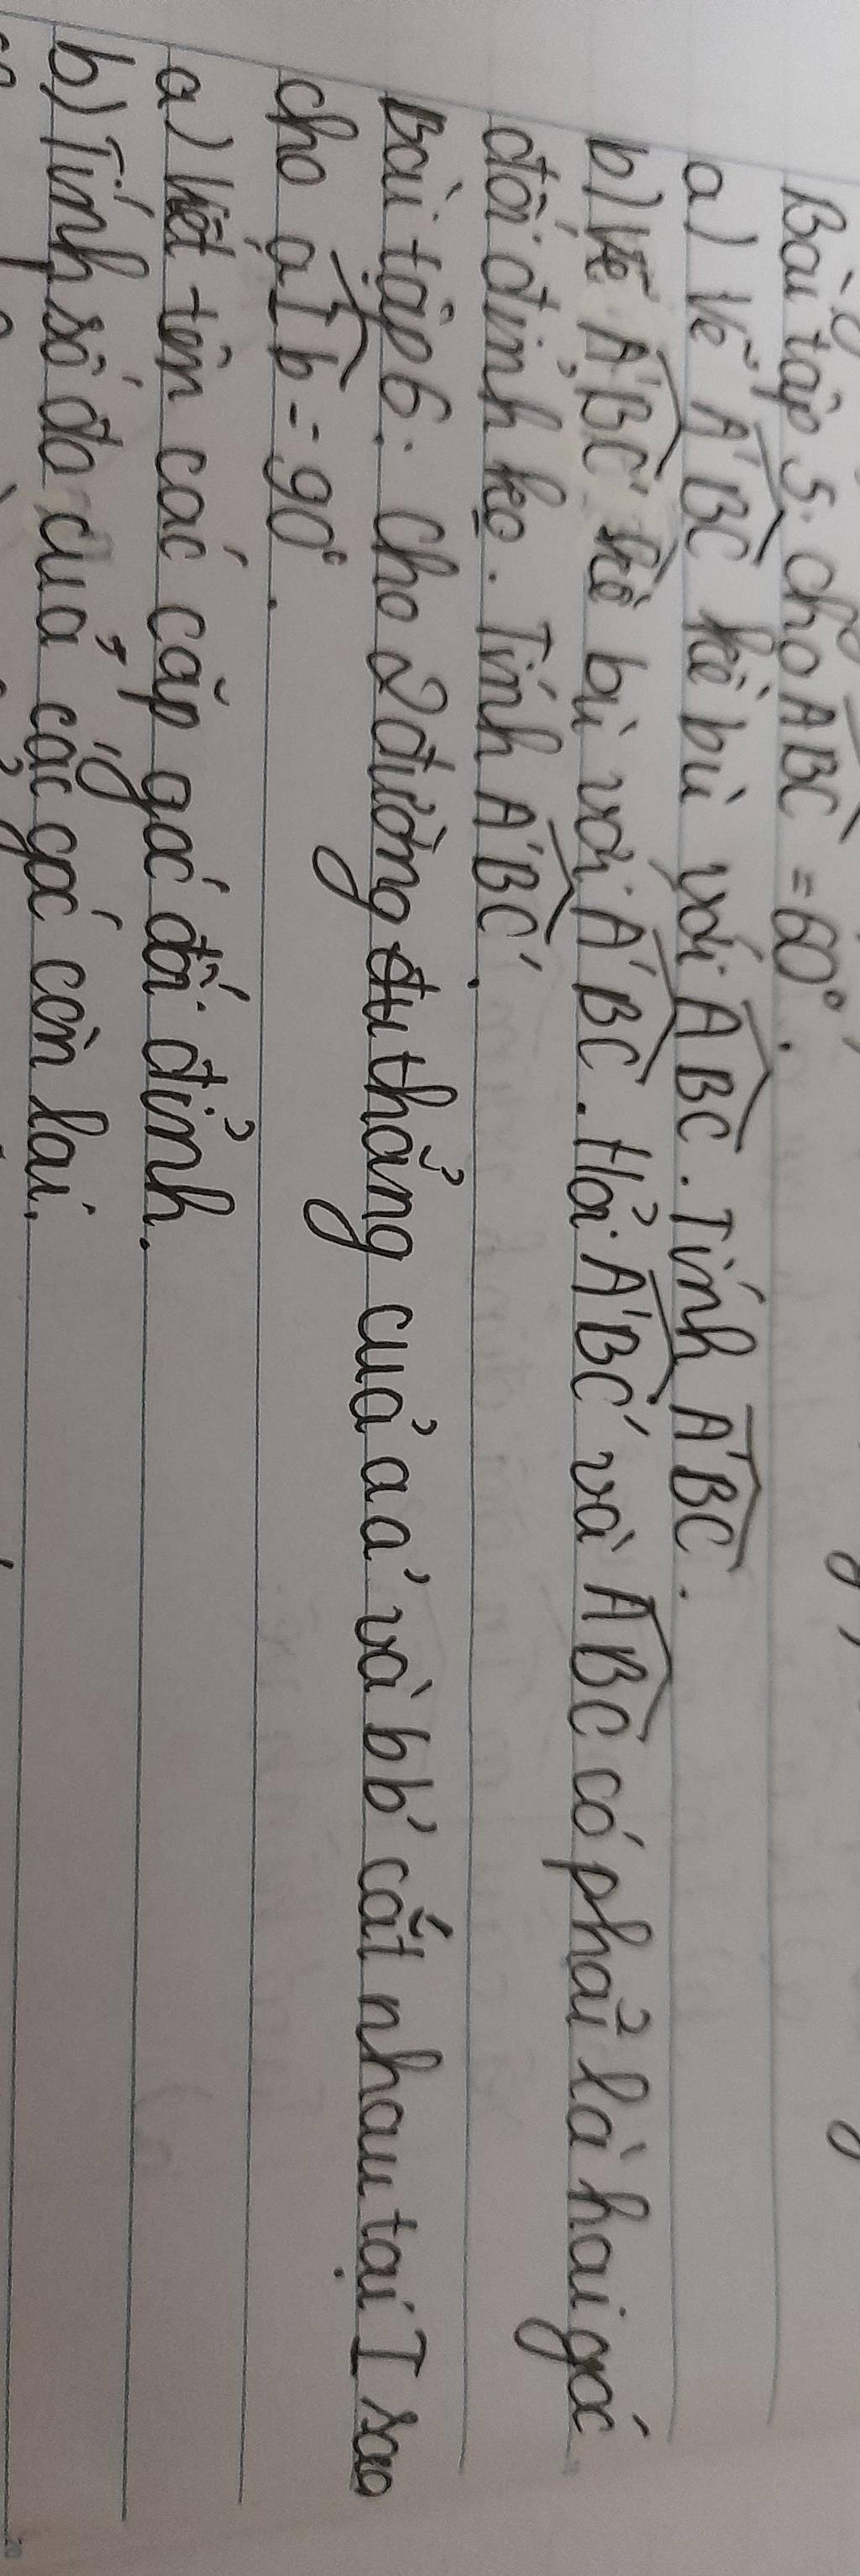 Bài tập 5. cho ABC = 60°.
a) Vẽ A'BC kề bù với ABC. Tính A'BC.
b) Vẽ A'BC' kề bù với A'BC. Hỏi A'BC' và ABC có phải là hai góc
đối đỉnh ko. Tính A'BC'.
Bài tập 6. Cho 2 đường thẳng cuả aa' và bb' cắt nhau tại I sao
cho aIb = 90°.
a) Viết tên các cặp góc đối đỉnh.
b) Tính số đo cuả các góc còn lại.